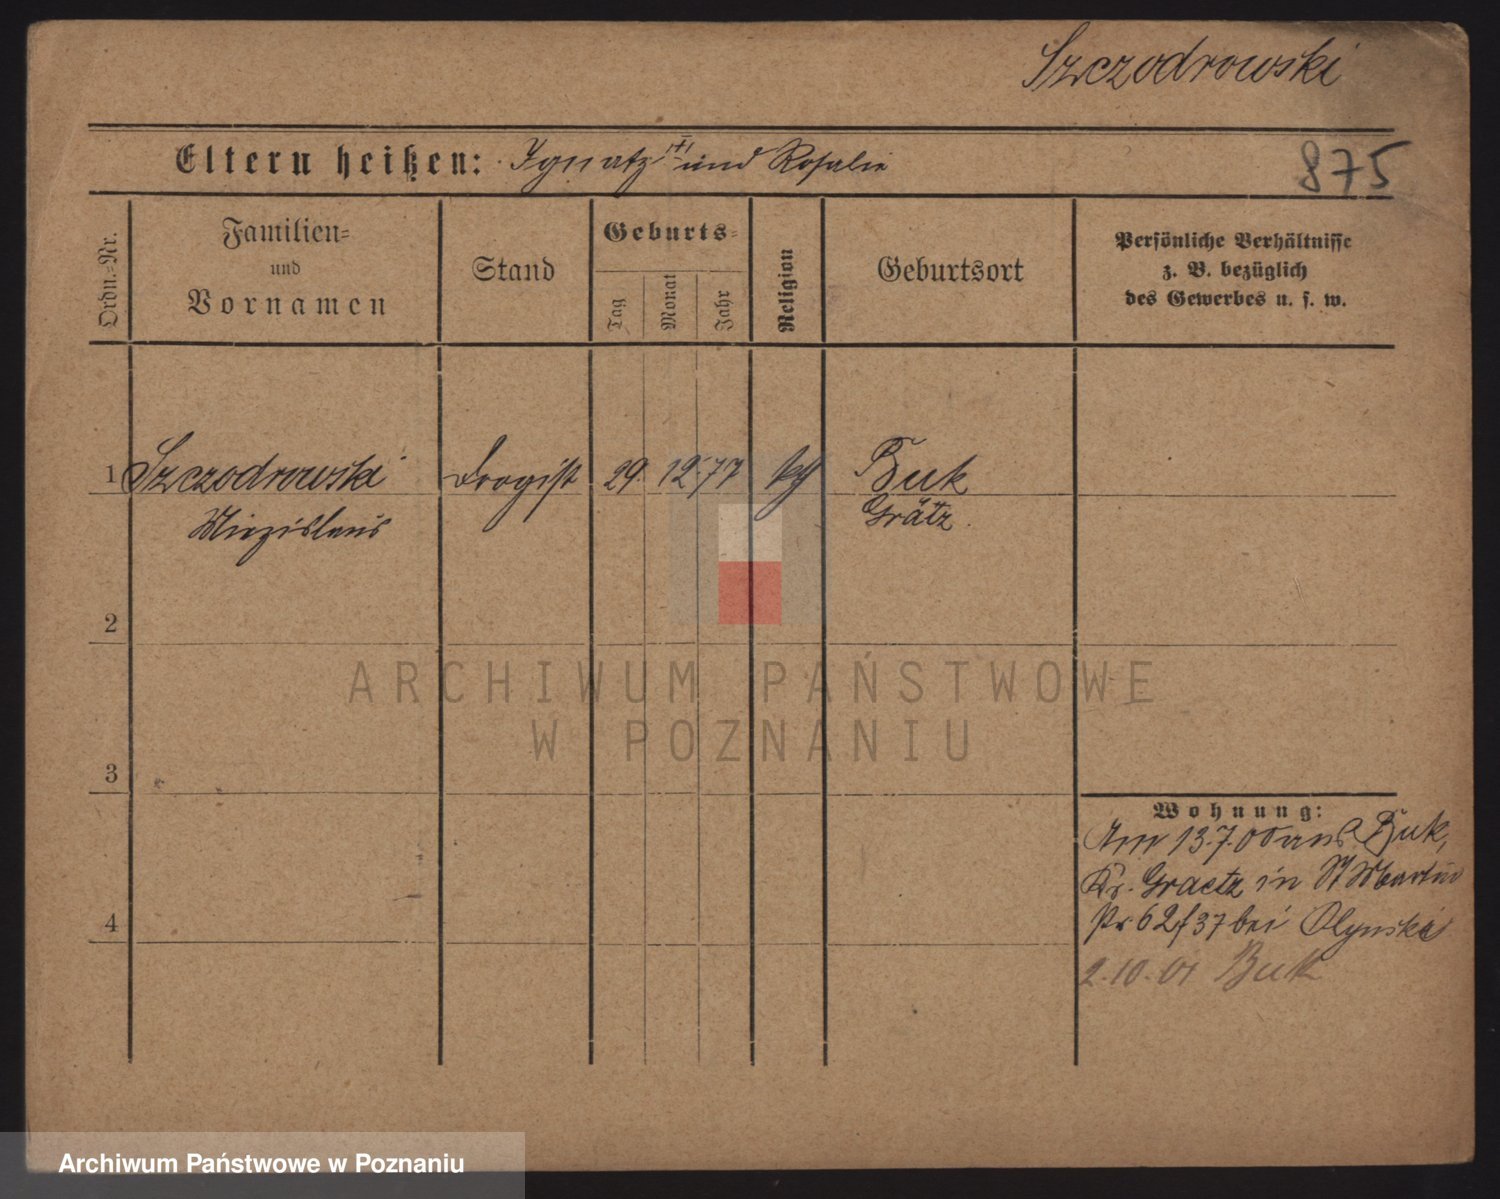 Szczodrowski
Eltern heißen: Ignatz und Rosalie
875
Ordn.=Nr.
Familien=
und
Vornamen
Stand
Geburts=
Tag
Monat
Jahr
Religion
Geburtsort
Persönliche Verhältnisse
z. B. bezüglich
des Gewerbes u. s. w.
1 Szczodrowski Drogist 29. 12. 77 kth Buk
Miezislaus Grätz.
2
ARCHIWUM PAŃSTWOWE
W POZNANIU
3
Wohnung:
Am 13.7.00 aus Buk,
Kr. Graetz in St Martin
62/37 bei Olynski
2.10.01 Buk
4
Archiwum Państwowe w Poznaniu